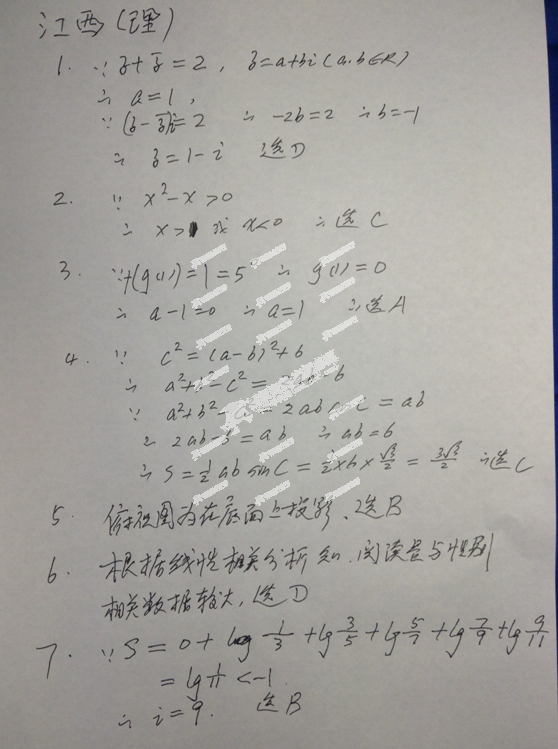 江西(理)
1. ∵ z+z̄=2, z=a+bi(a.b∈R)
∴ a=1,
∵ (z-z̄)i=2 ∴ -2b=2 ∴ b=-1
∴ z=1-i 选D
2. ∵ x²-x>0
∴ x>1 或 x<0 ∴选C
3. ∵f(g(1))=1=5° ∴ g(1)=0
∴ a-1=0 ∴ a=1 ∴选A
4. ∵ c²=(a-b)²+6
∴ a²+b²-c²=2ab-6
∵ a²+b²-c²=2abcosC=ab
∴ 2ab-6=ab ∴ ab=6
∴ S=½ab sinC=½×6×√3/2=3√3/2 ∴选C
5. 俯视图为在底面上投影、选B
6. 根据线性相关分析知,阅读量与性别
相关数据较大,选D
7. ∵S=0+lg 1/3+lg 3/5+lg 5/7+lg 7/9+lg 9/11
=lg 1/11<-1
∴ i=9. 选B